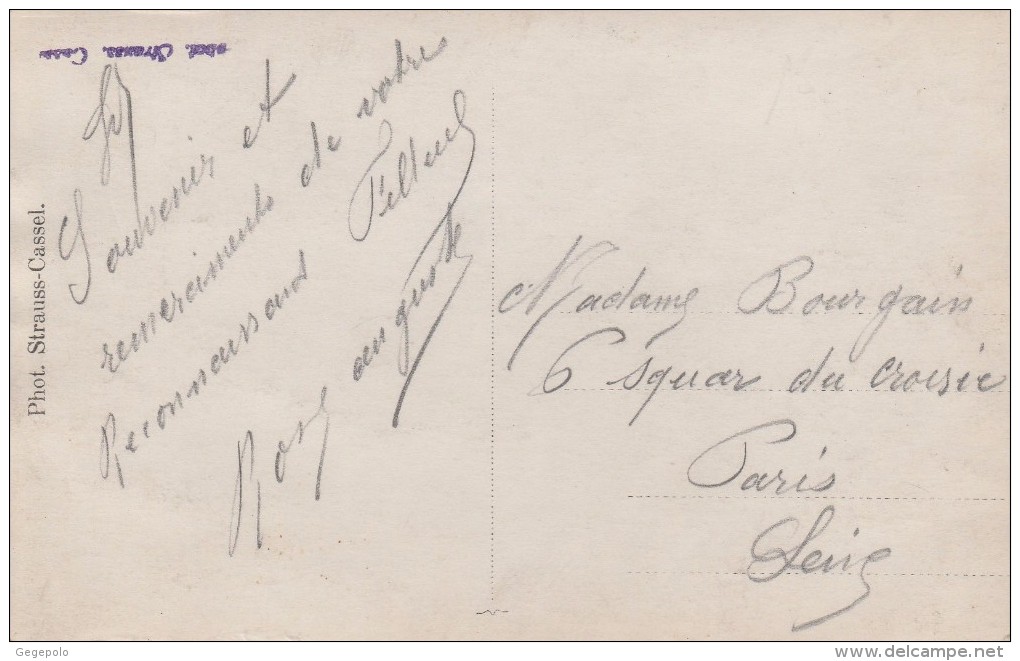 Phot. Strauss-Cassel.
Souvenir et
remerciments de votre
Reconneussant Filleul
Rosy auguste
Madame Bourgain
6 squar du croisic
Paris
Seine
Gegepolo
www.delcampe.net